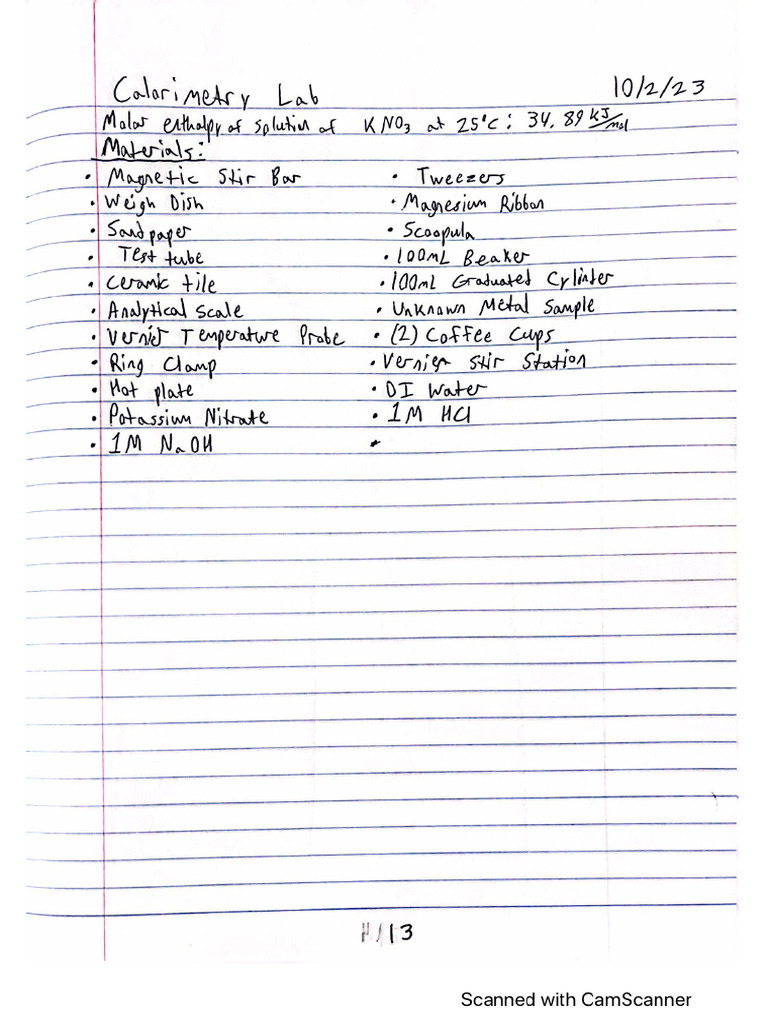 Calorimetry Lab 10/2/23
Molar enthalpy of solution of KNO₃ at 25°C: 34.89 kJ/mol
Materials:
• Magnetic Stir Bar • Tweezers
• Weigh Dish • Magnesium Ribbon
• Sandpaper • Scoopula
• Test tube • 100mL Beaker
• Ceramic tile • 100mL Graduated Cylinter
• Analytical Scale • Unknown Metal Sample
• Vernier Temperature Probe • (2) Coffee Cups
• Ring Clamp • Vernier Stir Station
• Hot plate • DI Water
• Potassium Nitrate • 1M HCl
• 1M NaOH •
13
Scanned with CamScanner